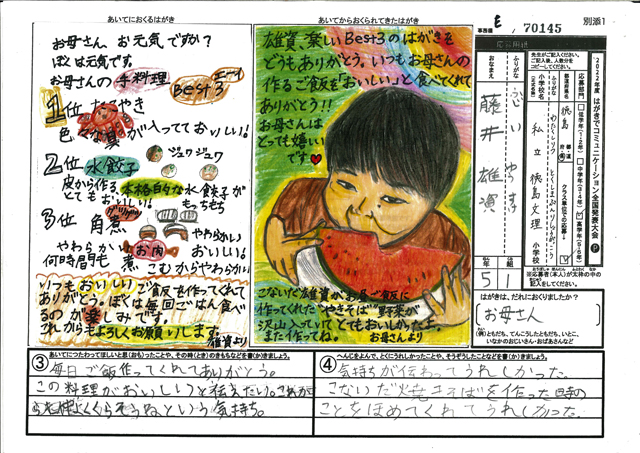 あいてにおくるはがき
お母さん、お元気ですか?
ぼくは元気です。
お母さんの手料理
Best3
1位 たこやき
色々な具が入ってておいしい!
2位 水餃子
ジュワジュワ
皮から作る、本格的な水餃子が
とてもおいしい!
もっちもち
3位 角煮
やわらかい
お肉
おいしい!
何時間も煮こむからやわらかい
いつもおいしいご飯を作ってくれて
ありがとう。ぼくは毎回ごはん食べ
るのが楽しみです。
これからもよろしくお願いします。
雄資より
あいてからおくられてきたはがき
雄資、楽しいBest3のはがきを
どうもありがとう。いつもお母さんの
作るご飯を「おいしい」と食べてくれて
ありがとう!!
お母さんは
とっても嬉しい
です
こないだ雄資がお昼ご飯に
作ってくれた"やきそば"野菜が
沢山入っていてとてもおいしかったよ。
また作ってね。
お母さんより
事務局
E
70145
別添1
2022年度 はがきでコミュニケーション全国発表大会
応募用紙
先生がご記入ください。
ご記入後、人数分を
コピーしてください。
応募部門
低学年(1・2年)
中学年(3・4年)
高学年(5・6年)
都道府県名
徳島
都・道
府・県
クラス単位での応募
小学校名
(正式名称)
私立 徳島文理 小学校
ふりがな
おなまえ
ふじい ゆうすけ
藤井 雄資
5年
1組
※応募者(本人)が太枠の中の
記入をしてください。
はがきは、だれにおくりましたか?
お母さん
(例)ともだち、てんこうしたともだち、いとこ、
いなかのおじいさん・おばあさんなど
③ あいてにつたわってほしいと思(おも)ったことや、その時(とき)のきもちなどを書(か)きましょう。
毎日ご飯作ってくれてありがとう。
この料理がおいしいっと伝えたい。これか
らも仲よくくらそうねという気持ち。
④ へんじをよんで、とくにうれしかったことや、そうぞうしたことなどを書(か)きましょう。
気持ちが伝わってうれしかった。
こないだ焼きそばを作った時の
ことをほめてくれてうれしかった。